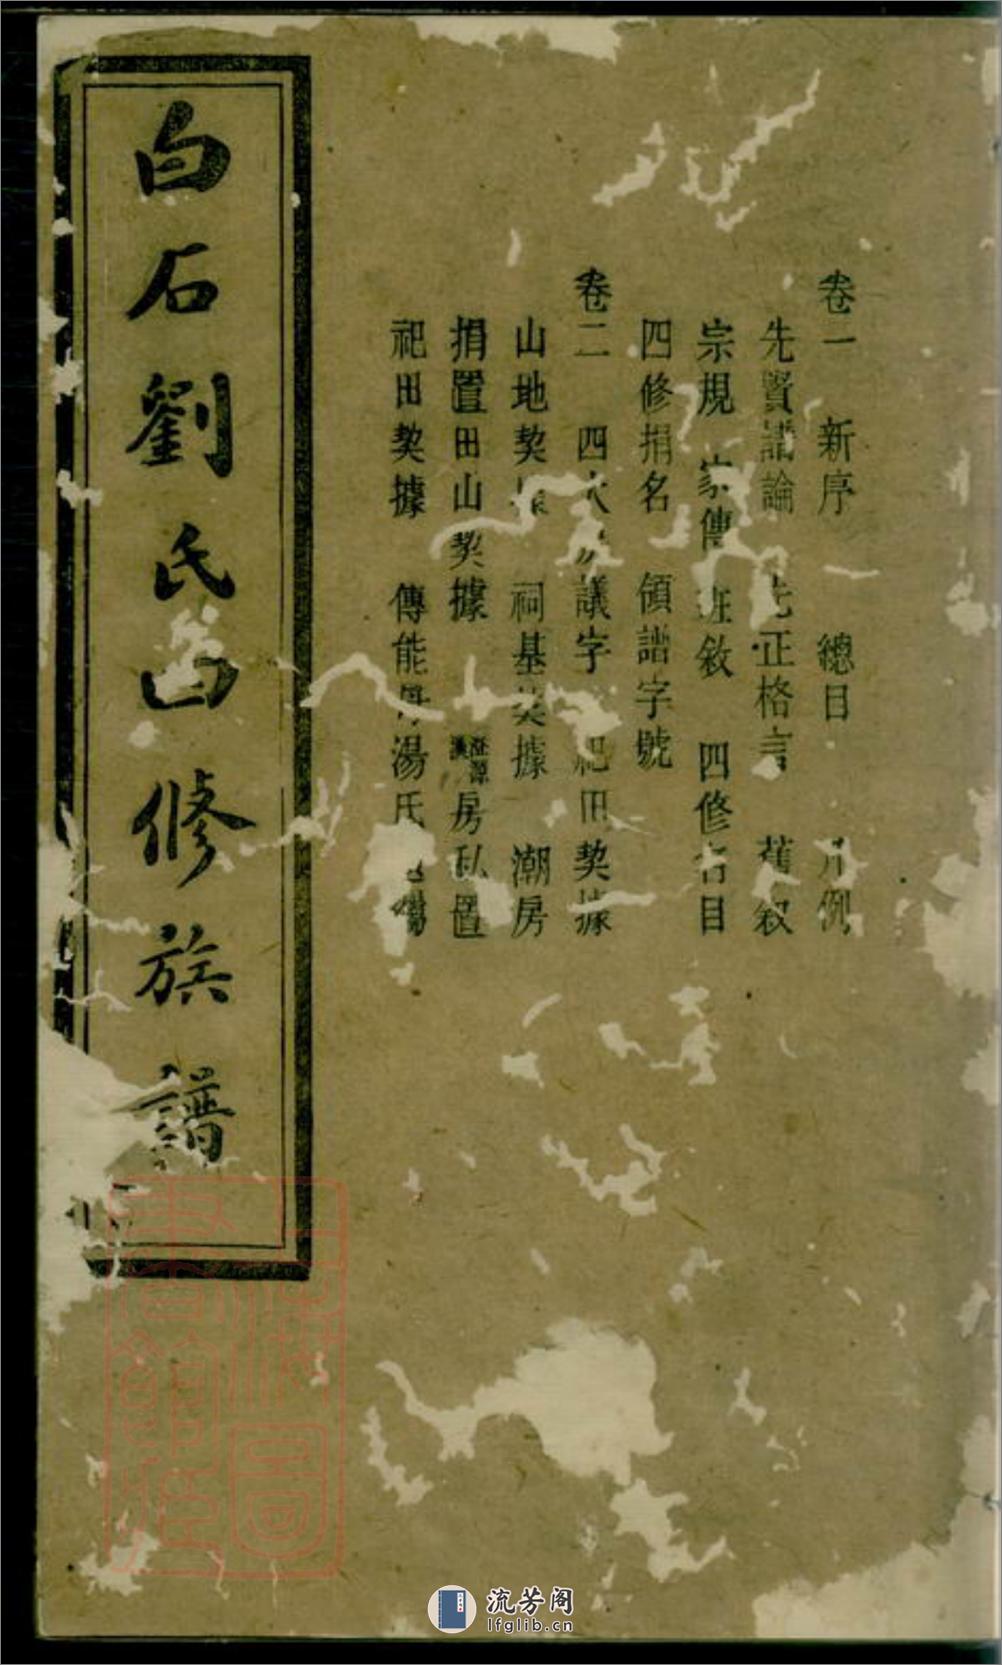 卷一 新序 總目 凡例
先賢譜論 先正格言 舊叙
宗規 家傳 班敘 四修名目
四修捐名 領譜字號
卷二 四大 議字 祀田契據
山地契據 祠基契據 潮房
捐置田山契據 房私置
祀田契據 傳能 湯氏
白石劉氏四修族譜
上海圖書館藏
流芳阁
lfglib.cn